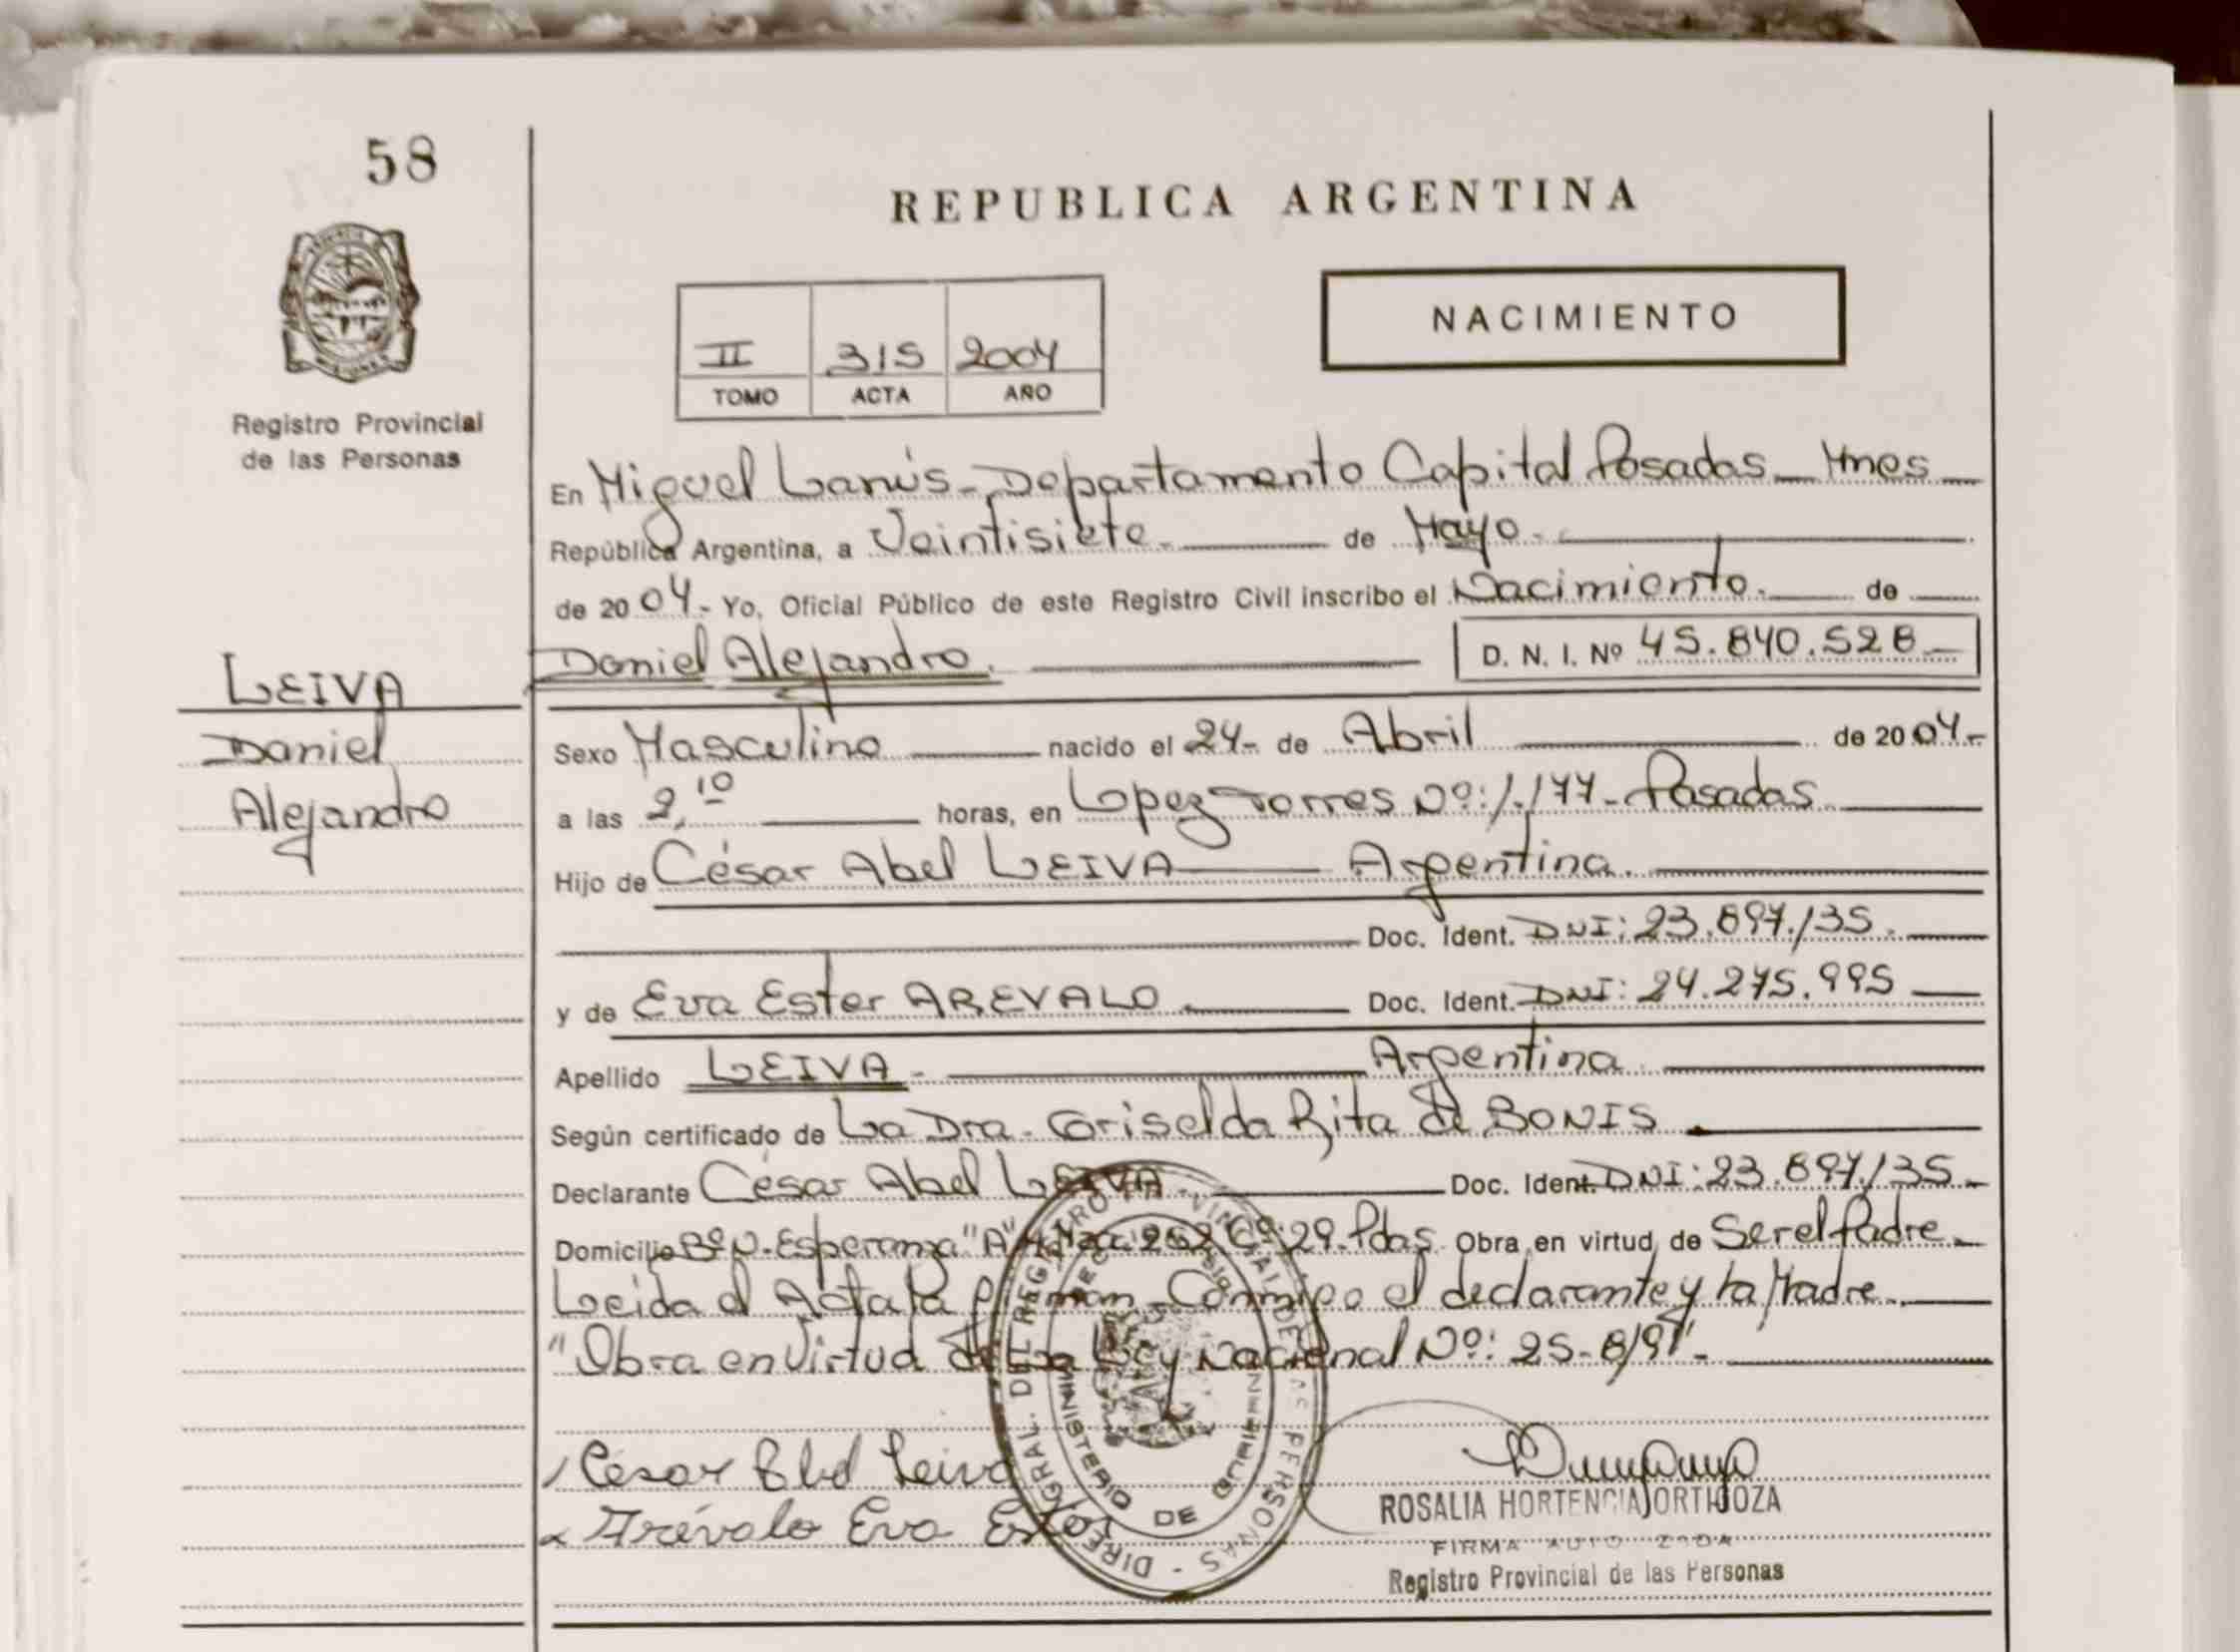 58
REPUBLICA ARGENTINA
NACIMIENTO
II 315 2004
TOMO ACTA AÑO
Registro Provincial
de las Personas
En Miguel Lanús - Departamento Capital Posadas - Mnes
República Argentina, a Veintisiete. de Mayo.
de 2004.- Yo, Oficial Público de este Registro Civil inscribo el Nacimiento. de
Daniel Alejandro. D. N. I. Nº 45.840.528
LEIVA
Daniel
Alejandro
Sexo Masculino nacido el 24- de Abril de 2004.-
a las 2,10 horas, en Lopez Torres Nº: 1.177 - Posadas
Hijo de César Abel LEIVA Argentina.
Doc. Ident. DNI: 23.897.135.
y de Eva Ester AREVALO. Doc. Ident. DNI: 24.275.995
Apellido LEIVA - Argentina
Según certificado de La Dra. Griselda Rita de BONIS
Declarante César Abel LEIVA Doc. Ident. DNI: 23.897.135.
Domicilio Bº N. Esperanza "A" Mza 252 Cº: 29. Pdas. Obra en virtud de Ser el Padre.
Leida el Acta la firman Conmigo el declarante y la Madre.
"Obra en Virtud de la Ley Nacional Nº: 25-819".
Cesar Abel Leiva
Arévalo Eva Ester
DIREC. GRAL. DEL REGISTRO PROVINCIAL DE LAS PERSONAS
MINISTERIO DE
ROSALIA HORTENCIA ORTIGOZA
FIRMA AUTORIZADA
Registro Provincial de las Personas